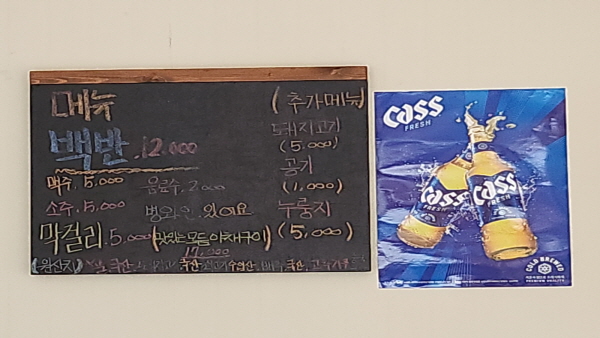 메뉴
백반 12,000
맥주. 5,000 음료수. 2,000
소주. 5,000 병와인. 있어요
막걸리. 5,000 (맛있는모듬야채구이)
17,000
(추가메뉴)
돼지고기
(5,000)
공기
(1,000)
누룽지
(5,000)
(원산지)
Cass
FRESH
Cass
FRESH
Cass
FRESH
COLD BREWED
PREMIUM QUALITY